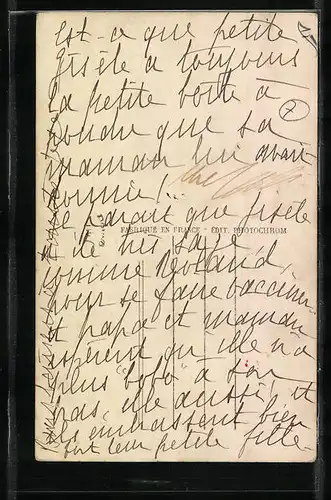 Est-ce que petite
Gisèle a toujours
la petite boîte à
poudre que sa
maman lui avait
donnée!..
Il paraît que Gisèle
FABRIQUE EN FRANCE - EDIT. PHOTOCHROM
a été très sage
comme Roland,
pour se faire vacciner
et papa et maman
espèrent qu'elle n'a
plus "bobo" à son
bras, elle aussi, et
ils embrassent bien
fort leur petite fille-
7